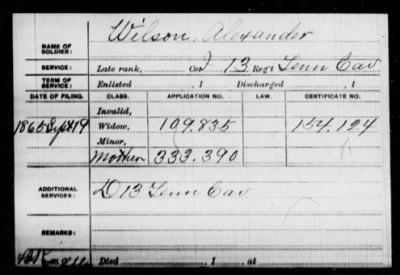 Wilson, Alexander
NAME OF SOLDIER:
SERVICE: Late rank, Co. D 13 Reg't Tenn Cav
TERM OF SERVICE: Enlisted , 1 Discharged , 1
DATE OF FILING. CLASS. APPLICATION NO. LAW. CERTIFICATE NO.
Invalid,
1865 Sept 19 Widow, 109.835 154.124
Minor,
Mother 333.390
ADDITIONAL SERVICES: D 13 Tenn Cav
REMARKS:
Died , 1 , at